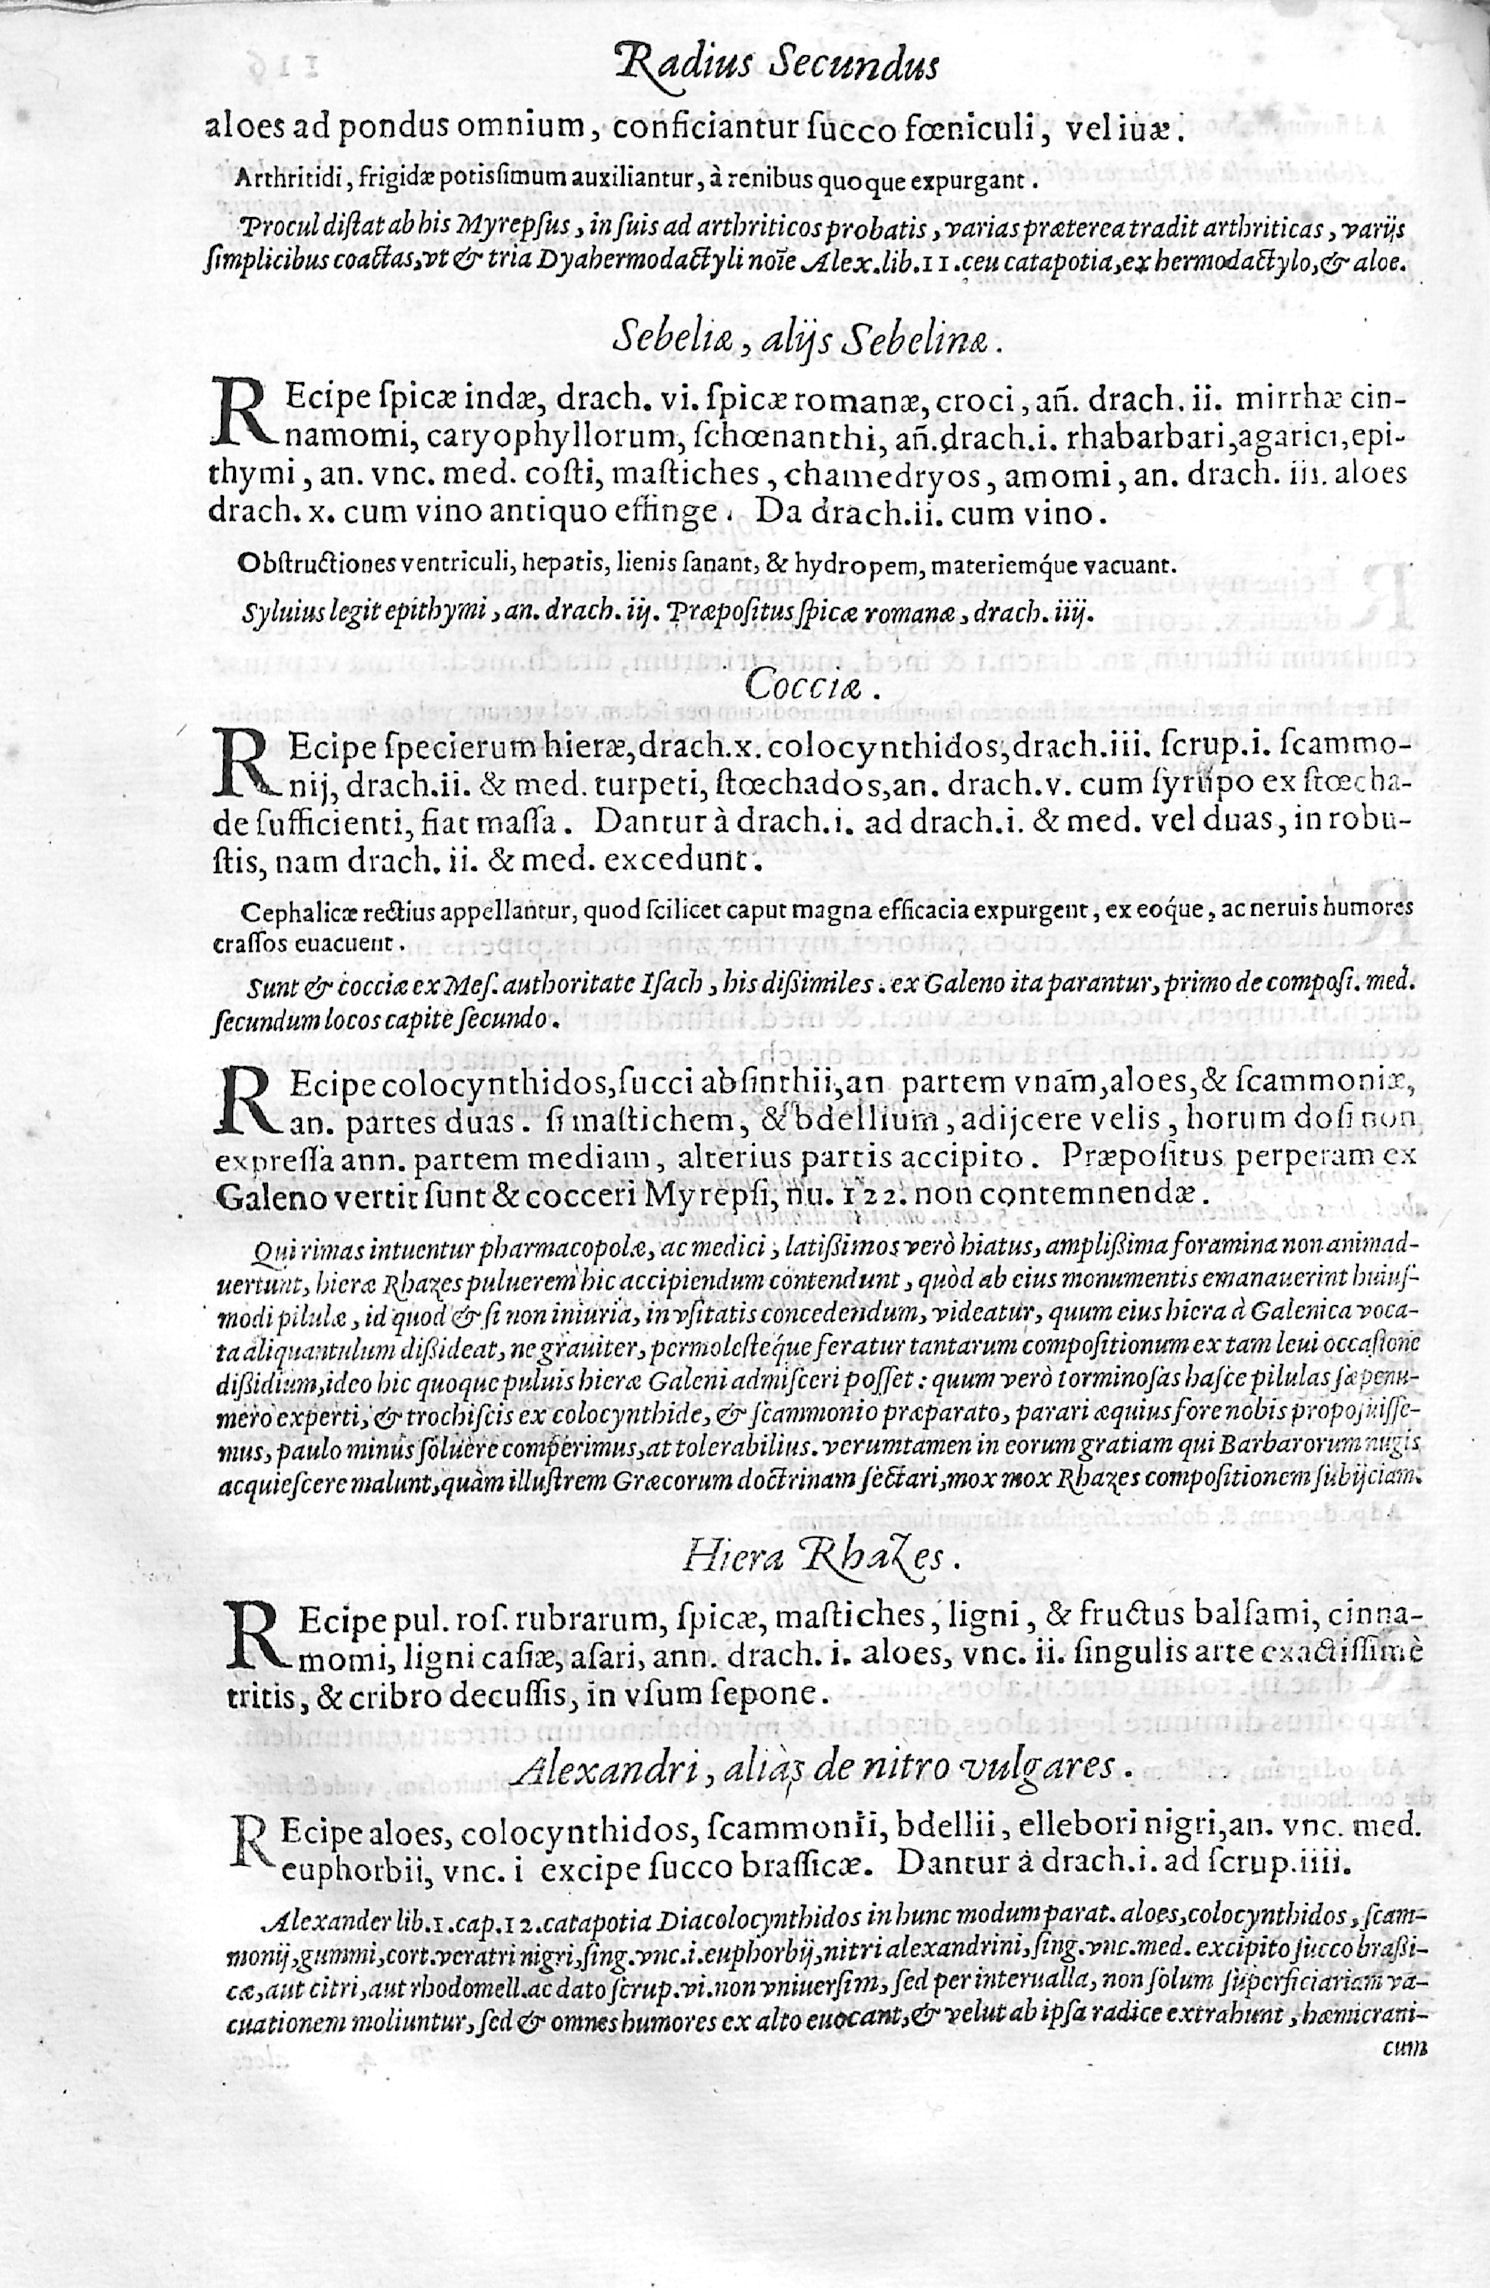 Radius Secundus
aloes ad pondus omnium, conficiantur ſucco fœniculi, vel iuæ.
Arthritidi, frigidæ potissimum auxiliantur, à renibus quoque expurgant.
Procul diſtat ab his Myrepſus, in ſuis ad arthriticos probatis, varias præterea tradit arthriticas, varijs
ſimplicibus coactas, vt & tria Dyahermodactyli noīe Alex. lib. 11. ceu catapotia, ex hermodactylo, & aloe.
Sebeliæ, alijs Sebelinæ.
REcipe ſpicæ indæ, drach. vi. ſpicæ romanæ, croci, añ. drach. ii. mirrhæ cin-
namomi, caryophyllorum, ſchœnanthi, añ. drach. i. rhabarbari, agarici, epi-
thymi, an. vnc. med. coſti, maſtiches, chamedryos, amomi, an. drach. iii. aloes
drach. x. cum vino antiquo effinge. Da drach. ii. cum vino.
Obſtructiones ventriculi, hepatis, lienis ſanant, & hydropem, materiemq́ue vacuant.
Syluius legit epithymi, an. drach. iij. Præpoſitus ſpicæ romanæ, drach. iiij.
Cocciæ.
REcipe ſpecierum hieræ, drach. x. colocynthidos, drach. iii. ſcrup. i. ſcammo-
nij, drach. ii. & med. turpeti, ſtœchados, an. drach. v. cum ſyrupo ex ſtœcha-
de ſufficienti, fiat maſſa. Dantur à drach. i. ad drach. i. & med. vel duas, in robu-
ſtis, nam drach. ii. & med. excedunt.
Cephalicæ rectius appellantur, quod ſcilicet caput magna efficacia expurgent, ex eoq́ue, ac neruis humores
craſſos euacuent.
Sunt & cocciæ ex Meſ. authoritate Iſach, his dißimiles. ex Galeno ita parantur, primo de compoſi. med.
ſecundum locos capite ſecundo.
REcipe colocynthidos, ſucci abſinthii, an partem vnam, aloes, & ſcammoniæ,
an. partes duas. ſi maſtichem, & bdellium, adijcere velis, horum doſi non
expreſſa ann. partem mediam, alterius partis accipito. Præpoſitus perperam ex
Galeno vertit ſunt & cocceri Myrepſi, nu. 122. non contemnendæ.
Qui rimas intuentur pharmacopolæ, ac medici, latißimos verò hiatus, amplißima foramina non animad-
uertunt, hieræ Rhazes puluerem hic accipiendum contendunt, quòd ab eius monumentis emanauerint huiuſ-
modi pilulæ, id quod & ſi non iniuria, in vſitatis concedendum, videatur, quum eius hiera à Galenica voca-
ta aliquantulum dißideat, ne grauiter, permoleſteq́ue feratur tantarum compoſitionum ex tam leui occaſione
dißidium, ideo hic quoque puluis hieræ Galeni admiſceri poſſet: quum verò torminoſas haſce pilulas ſæpenu-
mero experti, & trochiſcis ex colocynthide, & ſcammonio præparato, parari æquius fore nobis propoſuiſſe-
mus, paulo minus ſoluere comperimus, at tolerabilius. verumtamen in eorum gratiam qui Barbarorum nugis
acquieſcere malunt, quàm illuſtrem Græcorum doctrinam ſectari, mox mox Rhazes compoſitionem ſubijciam.
Hiera Rhazes.
REcipe pul. roſ. rubrarum, ſpicæ, maſtiches, ligni, & fructus balſami, cinna-
momi, ligni caſiæ, aſari, ann. drach. i. aloes, vnc. ii. ſingulis arte exactiſſimè
tritis, & cribro decuſſis, in vſum ſepone.
Alexandri, aliàs de nitro vulgares.
REcipe aloes, colocynthidos, ſcammonii, bdellii, ellebori nigri, an. vnc. med.
euphorbii, vnc. i excipe ſucco braſſicæ. Dantur à drach. i. ad ſcrup. iiii.
Alexander lib. 1. cap. 12. catapotia Diacolocynthidos in hunc modum parat. aloes, colocynthidos, ſcam-
monij, gummi, cort. veratri nigri, ſing. vnc. i. euphorbij, nitri alexandrini, ſing. vnc. med. excipito ſucco braßi-
cæ, aut citri, aut rhodomell. ac dato ſcrup. vi. non vniuerſim, ſed per interualla, non ſolum ſuperficiariam va-
cuationem moliuntur, ſed & omnes humores ex alto euocant, & velut ab ipſa radice extrahunt, hæmicrani-
cum